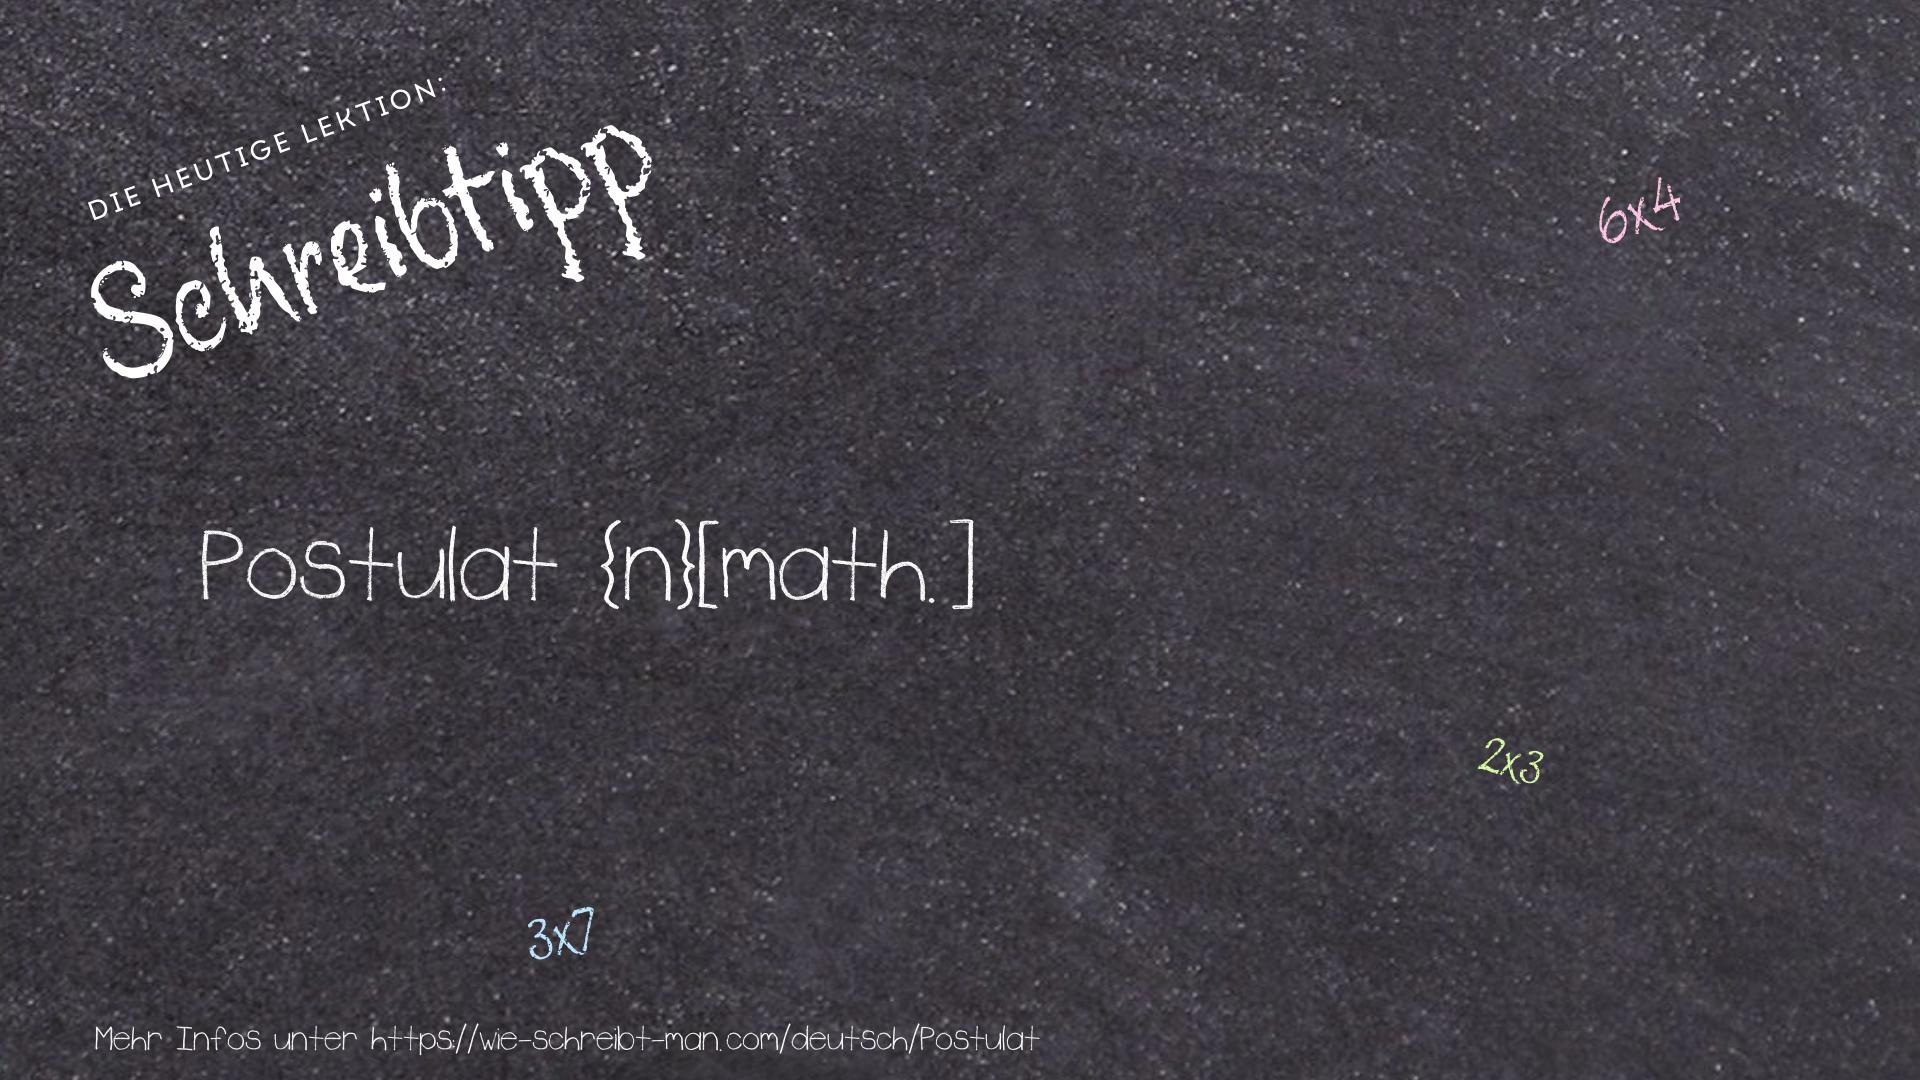 DIE HEUTIGE LEKTION:
Schreibtipp
6x4
Postulat {n}[math.]
2x3
3x7
Mehr Infos unter https://wie-schreibt-man.com/deutsch/Postulat